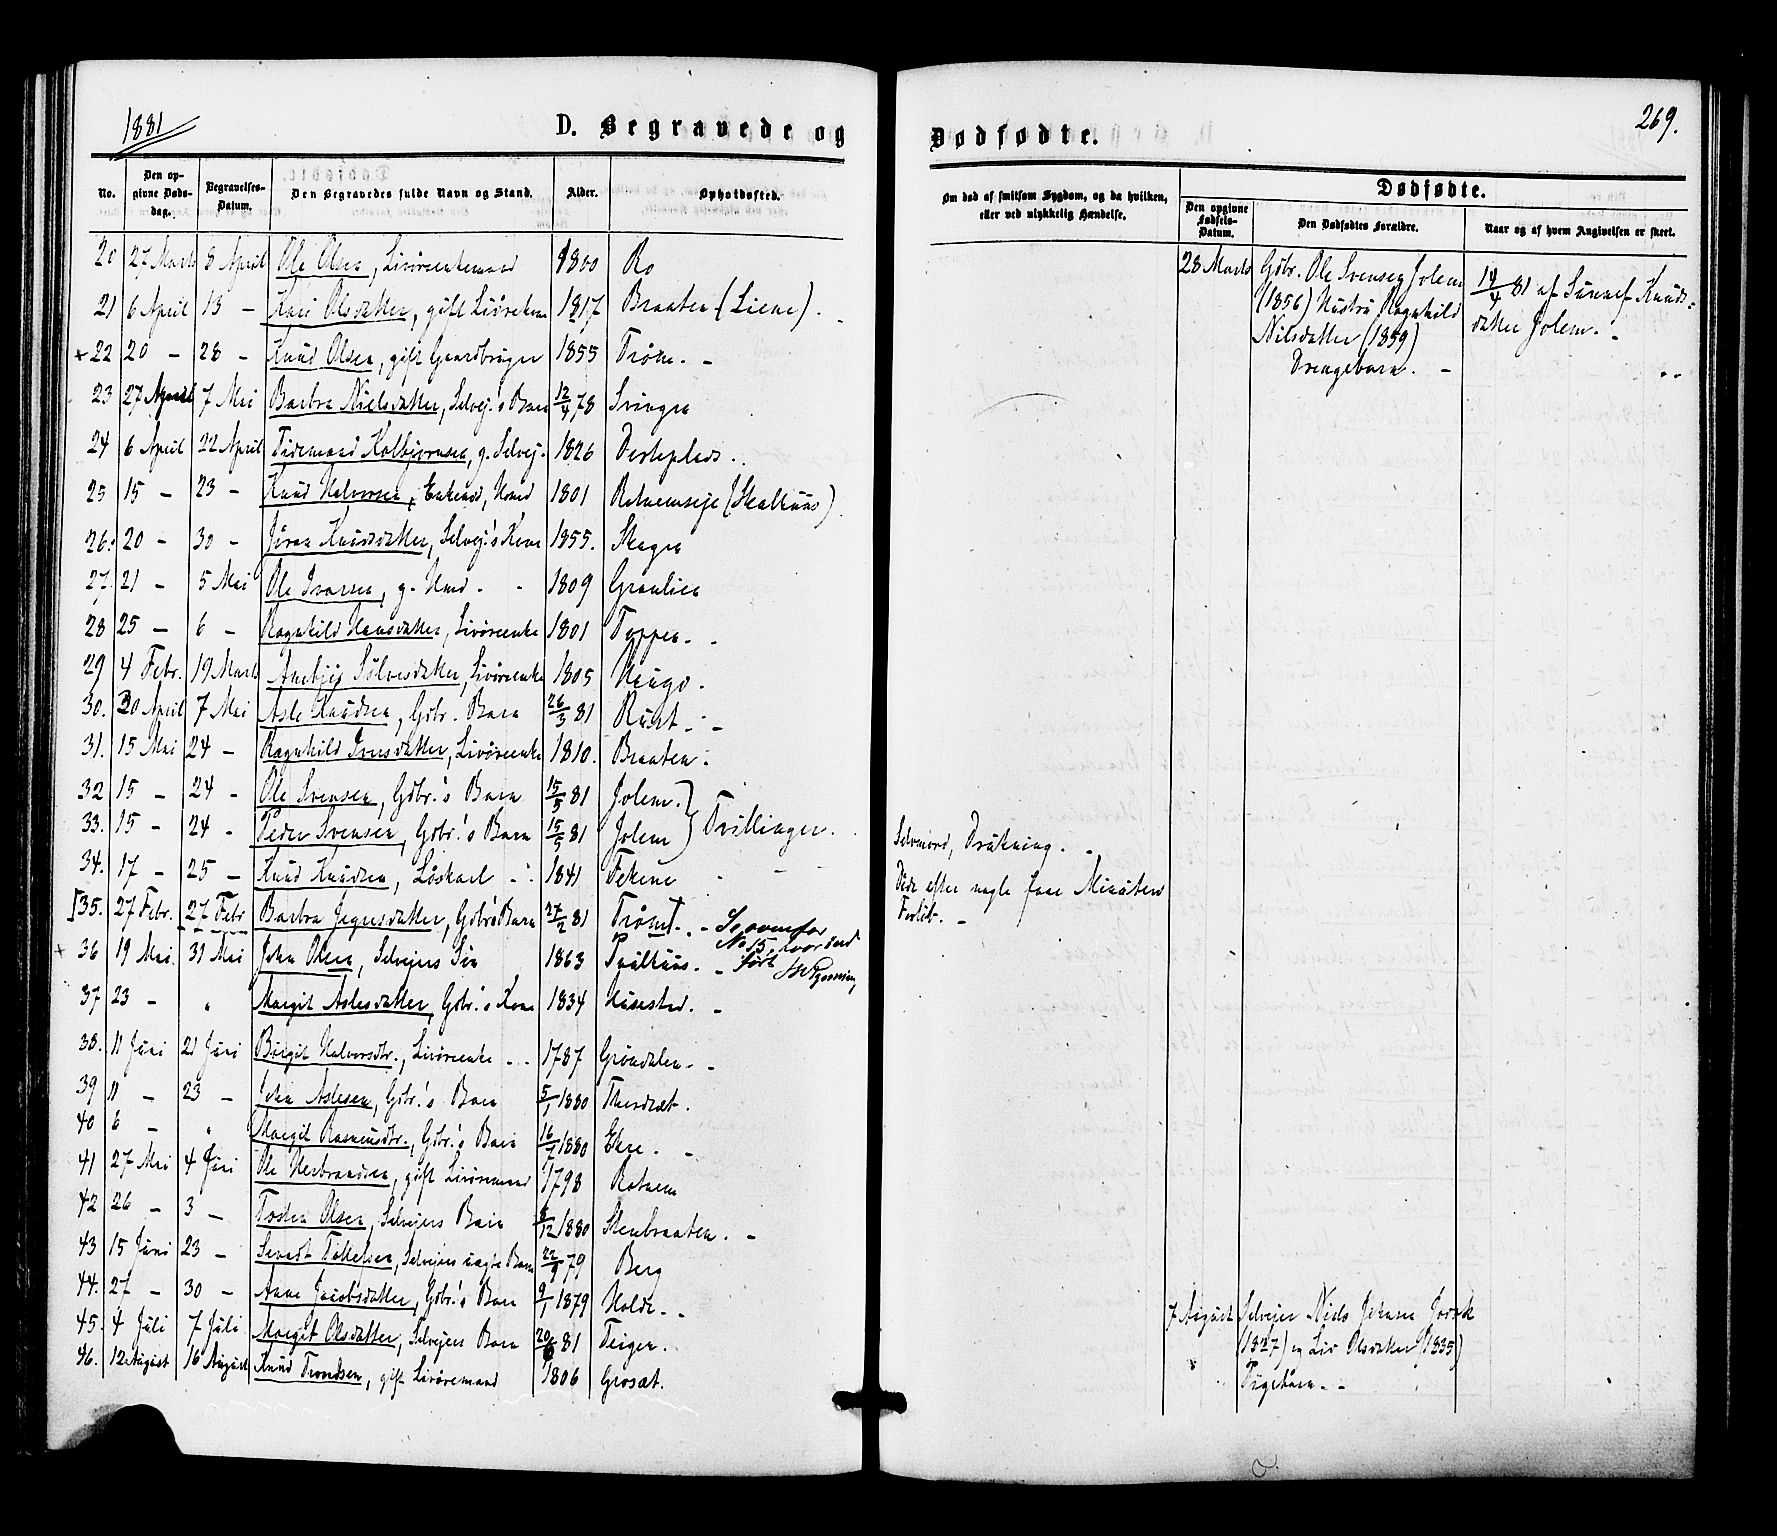 1881
D. Begravede og
No. Den op-givne Døds-dag. Begravelses-Datum. Den Begravedes fulde Navn og Stand. Alder. Opholdssted.
20 27 Marts 8 April Ole Olsen, Livøreenkemand 1800 Ro
21 6 April 13 - Kari Olsdatter, gift 1817 Braaten (Liene).
22 20 - 28 - Knud Olsen, gift Gaardbruger 1855 Trøim. -
23 27 April 7 Mai Barbra Nielsdatter, Selvej.'s Barn 12/4 78 Svingen
24 6 April 22 April Tidemand Kolbjørnsen, g. Selvej. 1826
25 15 - 23 - Knud Halvorsen, Enkemd, Hmd 1801 (Skalhuus).
26. 20 - 30 - Jøran Knudsdatter, Selvej.'s Kone 1855. Skogen
27. 21 - 5 Mai Ole Ivarsen, g. Hmd. - 1809 Granlien
28 25 - 6 - Ragnhild Hansdatter, Livøreenke 1801 Toppen. -
29 4 Febr. 19 Marts Anebjør Sølvesdatter, Livøreenke 1805
30. 20 April 7 Mai Asle Knudsen, Gdbr. Barn 26/3 81 Rust. -
31. 15 Mai 24 - Ragnhild Iversdatter, Livøreenke 1810. Braaten.
32 15 - 24 - Ole Svensen, Gdbr.'s Barn 15/5 81 Jolem. }
33. 15 - 24 - Peder Svensen, Gdbr.'s Barn 15/5 81 Jolem } Tvillinger.
34. 17 - 25 - Knud Knudsen, Løskarl 1841 Fekene
35. 27 Febr. 27 Febr Barbra Jegusdatter, Gdbr's Barn 27/2 81 Trøim. - Se ovenfor
No 15, hvor ind-
ført
36 19 Mai. 31 Mai John Olsen, Selvejers Søn 1863 -
37 23 - " Margit Aslesdatter, Gdbr.'s Kone 1834 Husested. -
38. 11 Juni 21 Juni Birgit Halvorsdtr., Livøreenke - 1787 Grøndalen. -
39 11 - 23 - John Aslesen, Gdbr.'s Barn 5/1 1880 Thordset.
40 6 - " Margit Rasmusdtr., Gdbr.'s Barn 16/7 1880 Ekre. -
41 27 Mai 4 Juni Ole Herbrandsen, gift Livøremand 1798 Rotnem
42 26 - 3 - Tosten Olsen, Selvejers Barn 8/12 1880 Stenbraaten. -
43 15 Juni 23 - Tollefsen, Selvejers uægte Barn 22/9 79 Berg
44. 27 - 30 - Anne Jacobsdatter, Gdbr.'s Barn 9/1 1879 Holde. -
45. 4 Juli 7 Juli Margit Olsdatter, Selvejers Barn 20/6 81 Teigen.
46. 12 August 16 August Knud Trondsen, gift Livøremand 1806 Grosæt.
269.
Dødfødte.
Om død af smitsom Sygdom, og da hvilken, eller ved ulykkelig Hændelse.
Dødfødte.
Den opgivne Fødsels-Datum. Den Dødfødtes Forældre. Naar og af hvem Angivelsen er skeet.
28 Marts Gdbr. Ole Svensen Jolem
(1856) Hustru Ragnhild
Nilsdatter (1859)
Drengebarn. -
14/4 81 af Sunnef Knuds-
datter Jolem. -
Selvmord, Drukning. -
Døde efter nogle faae Minuters
Forløb. -
7 August Selveier Niels Johnsen
(1827) og Liv Olsdatter (1835)
Pigebarn. -